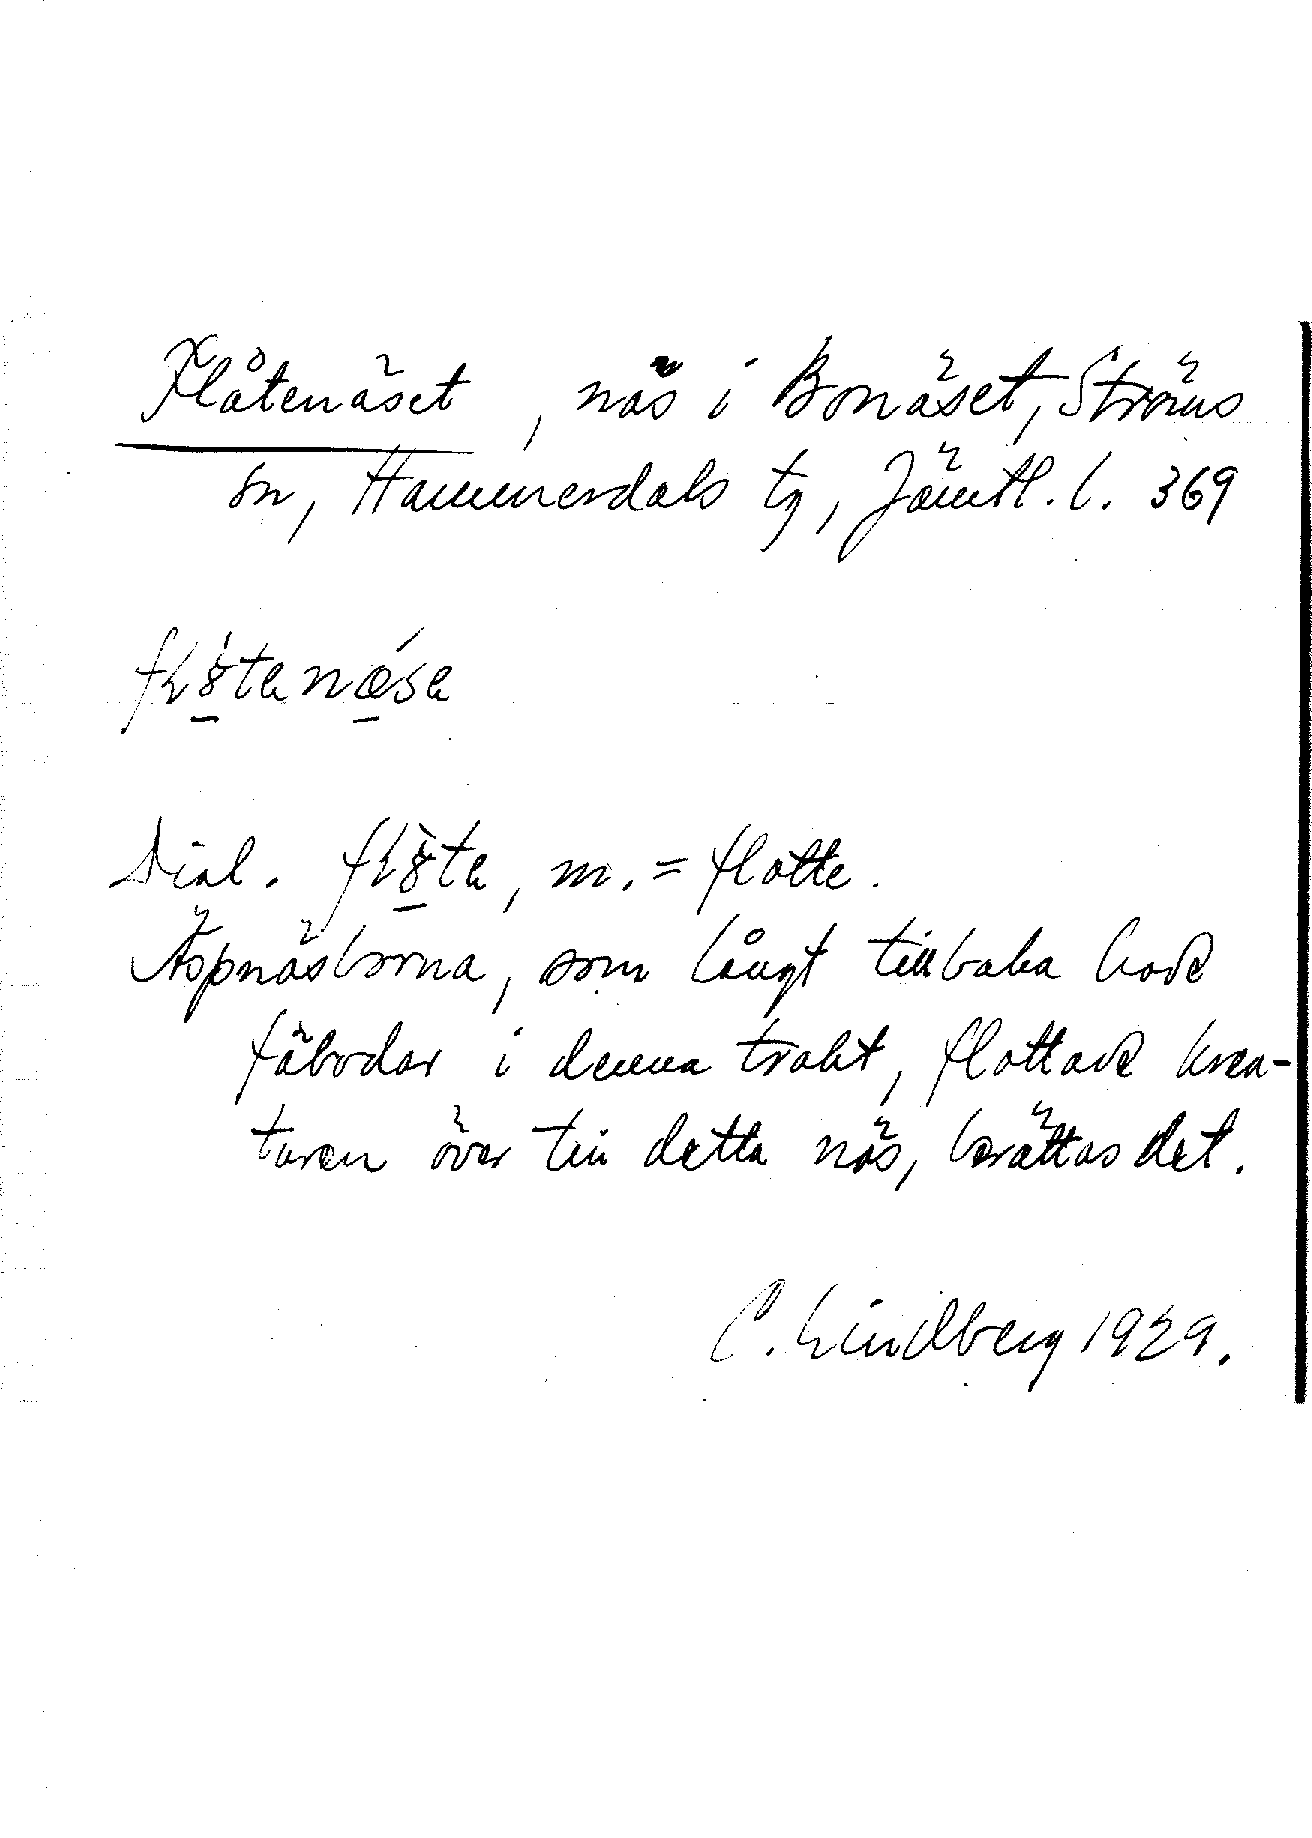 Flåtenäset, näs i Bonäset, Ströms
sn, Hammerdals tg, Jämtl. l. 369
Dial. , m. = flotte.
Äspnäsborna, som långt tillbaka hade
fäbodar i denna trakt, flottade krea-
turen över till detta näs, berättas det.
C. Lindberg 1929.